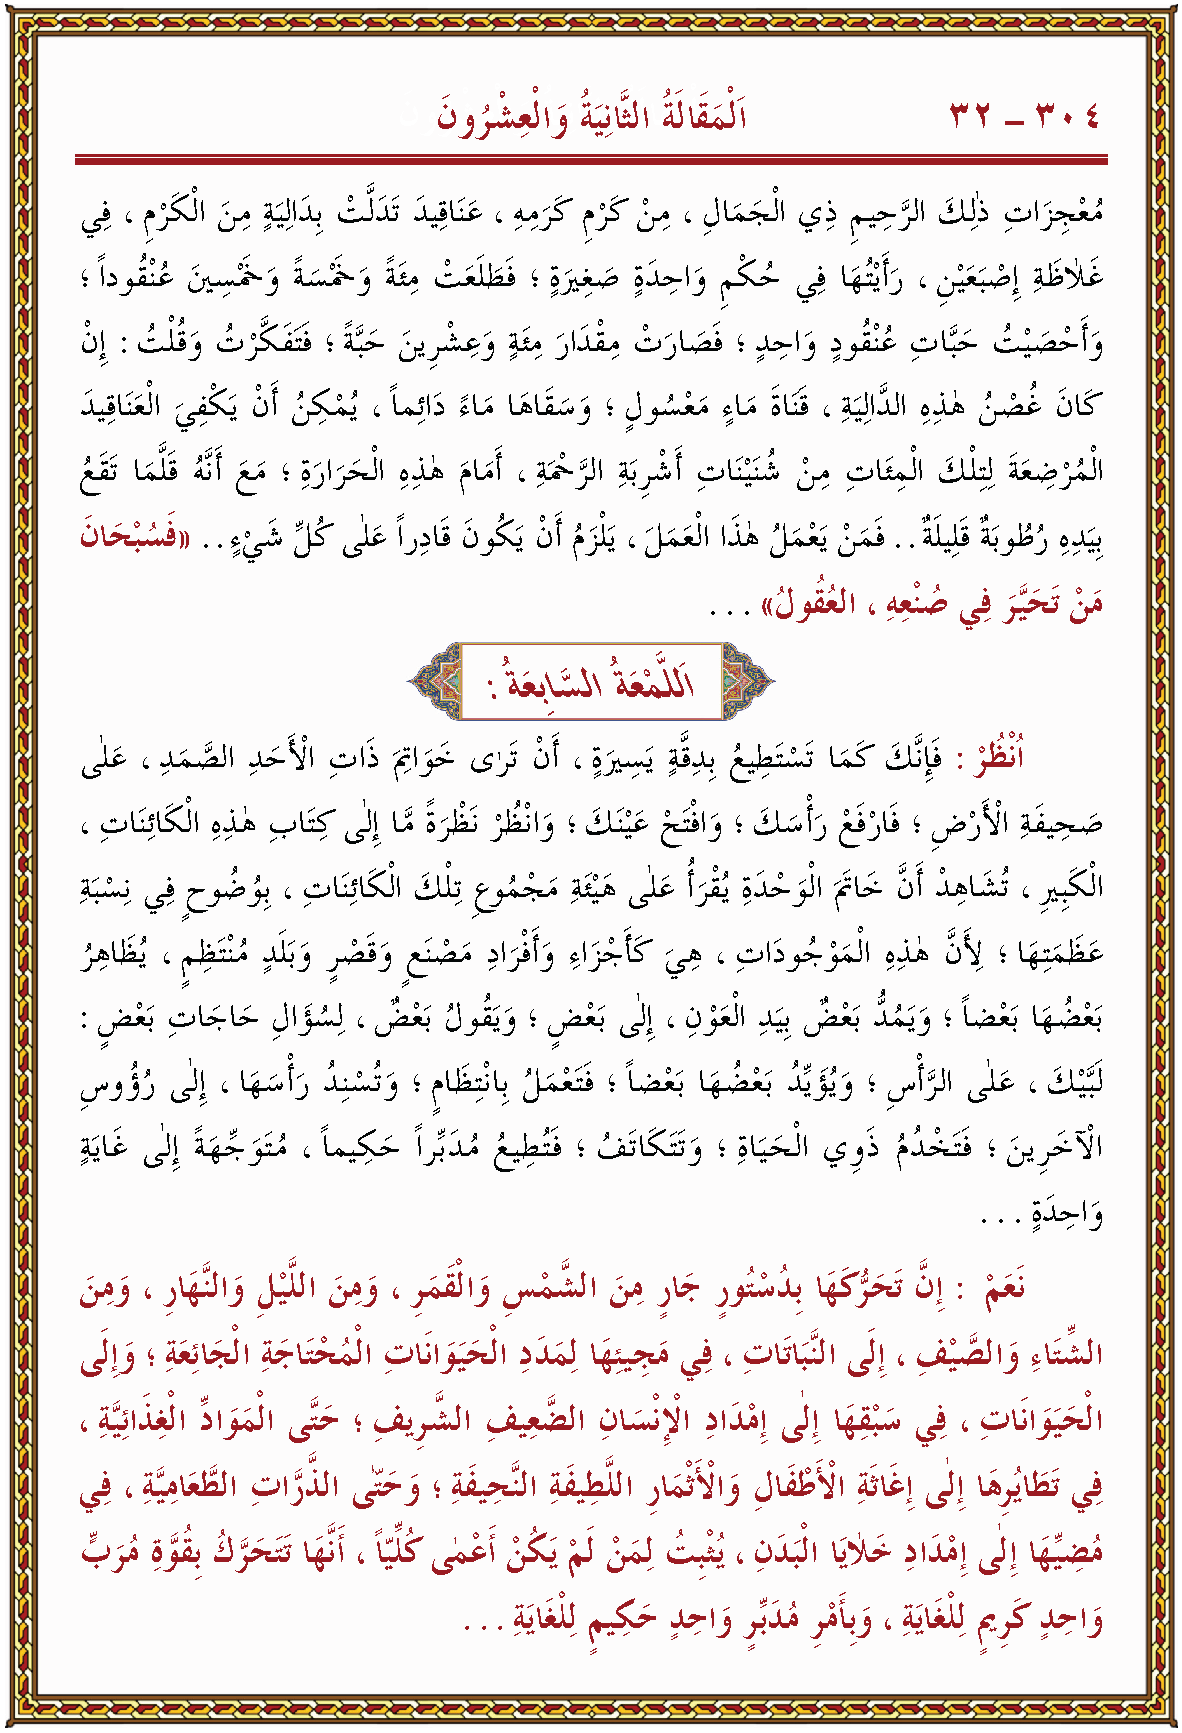 ٣٠٤ – ٣٢ اَلْمَقَالَةُ الثَّانِيَةُ وَالْعِشْرُونَ
مُعْجِزَاتِ ذٰلِكَ الرَّحِيمِ ذِي الْجَمَالِ ، مِنْ كَرْمِ كَرَمِهِ ، عَنَاقِيدَ تَدَلَّتْ بِدَالِيَةٍ مِنَ الْكَرْمِ ، فِي
غَلَاظَةِ إِصْبَعَيْنِ ، رَأَيْتُهَا فِي حُكْمٍ وَاحِدَةٍ صَغِيرَةٍ ؛ فَطَلَعَتْ مِئَةً وَخَمْسَةً وَخَمْسِينَ عُنْقُوداً ؛
وَأَحْصَيْتُ حَبَّاتِ عُنْقُودٍ وَاحِدٍ ؛ فَصَارَتْ مِقْدَارَ مِئَةٍ وَعِشْرِينَ حَبَّةً ؛ فَتَفَكَّرْتُ وَقُلْتُ : إِنْ
كَانَ غُصْنُ هٰذِهِ الدَّالِيَةِ ، قَنَاةَ مَاءٍ مَعْسُولٍ ؛ وَسَقَاهَا مَاءً دَائِماً ، يُمْكِنُ أَنْ يَكْفِيَ الْعَنَاقِيدَ
الْمُرْضِعَةَ لِتِلْكَ الْمِئَاتِ مِنْ شُنَيْنَاتِ أَشْرِبَةِ الرَّحْمَةِ ، أَمَامَ هٰذِهِ الْحَرَارَةِ ؛ مَعَ أَنَّهُ قَلَّمَا تَقَعُ
بِيَدِهِ رُطُوبَةٌ قَلِيلَةٌ . . فَمَنْ يَعْمَلُ هٰذَا الْعَمَلَ ، يَلْزَمُ أَنْ يَكُونَ قَادِراً عَلٰى كُلِّ شَيْءٍ . . «فَسُبْحَانَ
مَنْ تَحَيَّرَ فِي صُنْعِهِ ، الْعُقُولُ» . . .
اَللَّمْعَةُ السَّابِعَةُ :
اُنْظُرْ : فَإِنَّكَ كَمَا تَسْتَطِيعُ بِدِقَّةٍ يَسِيرَةٍ ، أَنْ تَرٰى خَوَاتِمَ ذَاتِ الْأَحَدِ الصَّمَدِ ، عَلٰى
صَحِيفَةِ الْأَرْضِ ؛ فَارْفَعْ رَأْسَكَ ؛ وَافْتَحْ عَيْنَكَ ؛ وَانْظُرْ نَظْرَةً مَّا إِلٰى كِتَابِ هٰذِهِ الْكَائِنَاتِ ،
الْكَبِيرِ ، تُشَاهِدْ أَنَّ خَاتَمَ الْوَحْدَةِ يُقْرَأُ عَلٰى هَيْئَةِ مَجْمُوعِ تِلْكَ الْكَائِنَاتِ ، بِوُضُوحٍ فِي نِسْبَةِ
عَظَمَتِهَا ؛ لِأَنَّ هٰذِهِ الْمَوْجُودَاتِ ، هِيَ كَأَجْزَاءِ وَأَفْرَادِ مَصْنَعٍ وَقَصْرٍ وَبَلَدٍ مُنْتَظِمٍ ، يُظَاهِرُ
بَعْضُهَا بَعْضاً ؛ وَيَمُدُّ بَعْضٌ بِيَدِ الْعَوْنِ ، إِلٰى بَعْضٍ ؛ وَيَقُولُ بَعْضٌ ، لِسُؤَالِ حَاجَاتِ بَعْضٍ :
لَبَّيْكَ ، عَلَى الرَّأْسِ ؛ وَيُؤَيِّدُ بَعْضُهَا بَعْضاً ؛ فَتَعْمَلُ بِانْتِظَامٍ ؛ وَتُسْنِدُ رَأْسَهَا ، إِلٰى رُؤُوسِ
الْآخَرِينَ ؛ فَتَخْدُمُ ذَوِي الْحَيَاةِ ؛ وَتَتَكَاتَفُ ؛ فَتُطِيعُ مُدَبِّراً حَكِيماً ، مُتَوَجِّهَةً إِلٰى غَايَةٍ
وَاحِدَةٍ . . .
نَعَمْ : إِنَّ تَحَرُّكَهَا بِدُسْتُورٍ جَارٍ مِنَ الشَّمْسِ وَالْقَمَرِ ، وَمِنَ اللَّيْلِ وَالنَّهَارِ ، وَمِنَ
الشِّتَاءِ وَالصَّيْفِ ، إِلَى النَّبَاتَاتِ ، فِي مَجِيئِهَا لِمَدَدِ الْحَيَوَانَاتِ الْمُحْتَاجَةِ الْجَائِعَةِ ؛ وَإِلَى
الْحَيَوَانَاتِ ، فِي سَبْقِهَا إِلٰى إِمْدَادِ الْإِنْسَانِ الضَّعِيفِ الشَّرِيفِ ؛ حَتَّى الْمَوَادِّ الْغِذَائِيَّةِ ،
فِي تَطَايُرِهَا إِلٰى إِغَاثَةِ الْأَطْفَالِ وَالْأَثْمَارِ اللَّطِيفَةِ النَّحِيفَةِ ؛ وَحَتَّى الذَّرَّاتِ الطَّعَامِيَّةِ ، فِي
مُضِيِّهَا إِلٰى إِمْدَادِ خَلَايَا الْبَدَنِ ، يُثْبِتُ لِمَنْ لَمْ يَكُنْ أَعْمٰى كُلِّيّاً ، أَنَّهَا تَتَحَرَّكُ بِقُوَّةِ مُرَبٍّ
وَاحِدٍ كَرِيمٍ لِلْغَايَةِ ، وَبِأَمْرِ مُدَبِّرٍ وَاحِدٍ حَكِيمٍ لِلْغَايَةِ . . .